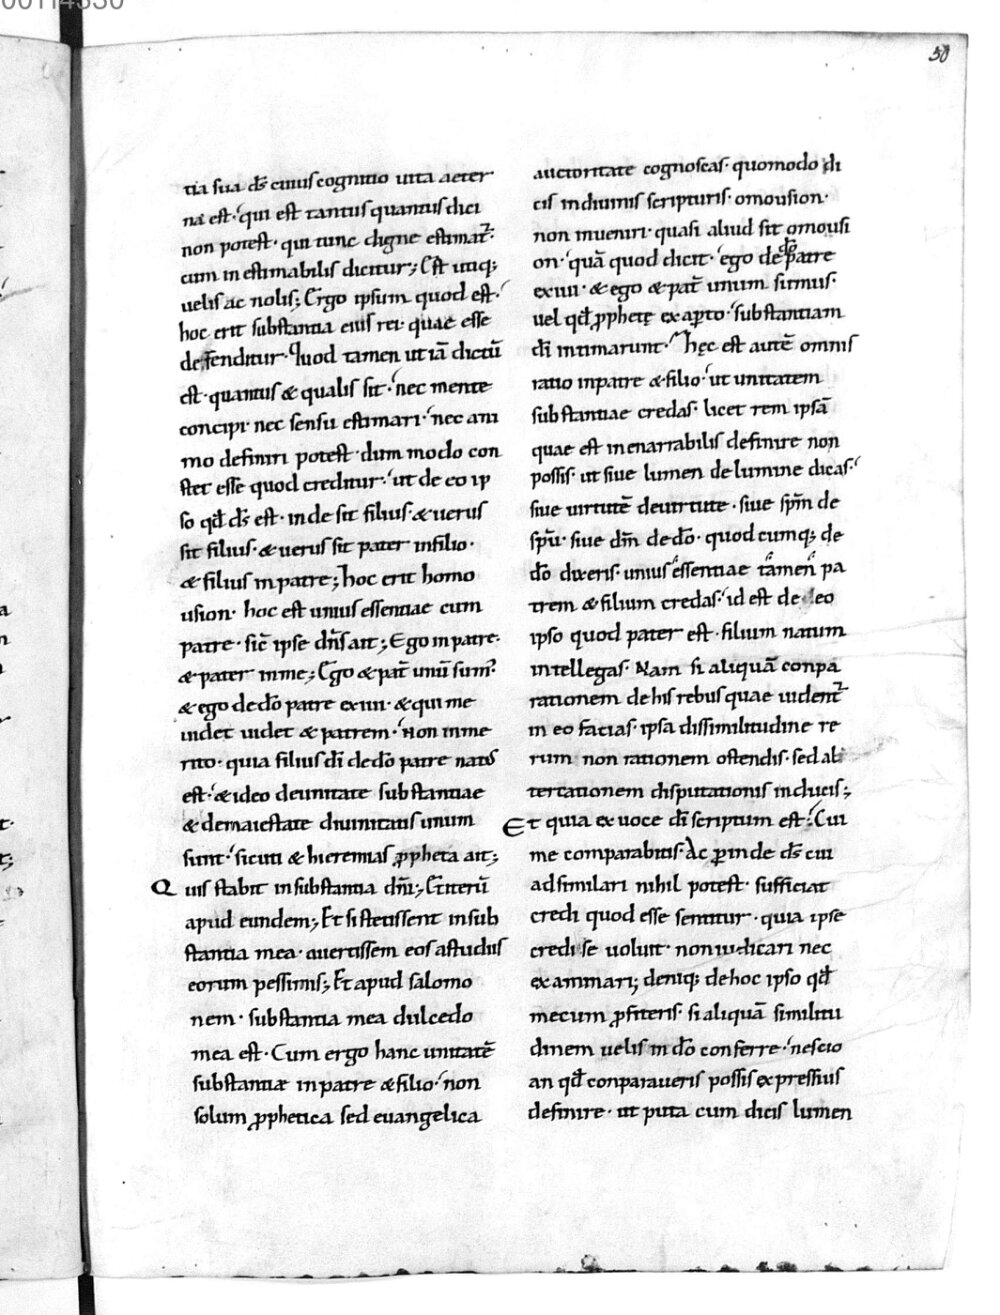 00114330
50
tia sua ds̄ cuius cognitio uita aeter
na est· qui est tantus quantus dici
non potest· qui tunc digne estimat̄·
cum inestimabilis dicitur; Est utiq;
uelis ac nolis; Ergo ipsum quod est·
hoc erit substantia eius rei· quae esse
defenditur· quod tamen ut iā dictū
est· quantus & qualis sit· nec mente
concipi· nec sensu estimari· nec ani
mo definiri potest· dum modo con
stet esse quod creditur· ut de eo ip
so qđ ds̄ est· inde sit filius· & uerus
sit filius· & uerus sit pater in filio·
& filius in patre; hoc erit homo
usion· hoc est unius essentiae cum
patre· sic̄ ipse dn̄s ait; Ego in patre·
& pater in me; Ergo & pat̄ unū sum̄·
& ego de dō patre exiui· & qui me
uidet uidet & patrem· Non inme
rito· quia filius dī de dō patre natus
est· & ideo de unitate substantiae
& de maiestate diuinitatis unum
sunt· sicuti & hieremias ꝓpheta ait;
Quis stabit in substantia dn̄i; Et iterū
apud eundem; Et si stetissent in sub
stantia mea· auertissem eos a studiis
eorum pessimis; Et apud salomo
nem· substantia mea dulcedo
mea est· Cum ergo hanc unitatē
substantiæ in patre & filio· non
solum ꝓphetica sed euangelica
auctoritate cognoscas· quomodo di
cis in diuinis scripturis· omousion·
non inueniri· quasi aliud sit omousi
on· quā quod dicit· ego de dō patre
exiui· & ego & pat̄ unum sumus·
uel qđ ꝓphetę ex aꝑto· substantiam
dī intimarunt· Hęc est autē omnis
ratio in patre & filio· ut unitatem
substantiae credas· licet rem ipsā
quae est inenarrabilis definire non
possis· ut siue lumen de lumine dicas·
siue uirtutē de uirtute· siue spm̄ de
spū· siue dm̄ de dō· quodcumq; de
dō dixeris· unius essentiae tamen pa
trem & filium credas· id est de eo
ipso quod pater est· filium natum
intellegas· Nam si aliquā conpa
rationem de his rebus quae uident̄
in eo facias· ipsa dissimilitudine re
rum non rationem ostendis· sed al
tercationem disputationis inducis;
Et quia ex uoce dī scriptum est· Cui
me comparabitis· Ac ꝓinde ds̄ cui
adsimilari nihil potest· sufficiat
credi quod esse sentitur· quia ipse
credi se uoluit· non iudicari nec
examinari; deniq; de hoc ipso qđ
mecum ꝓfiteris· si aliquā similitu
dinem uelis in dō conferre· nescio
an qđ conparaueris possis expressius
definire· ut puta cum dicis lumen